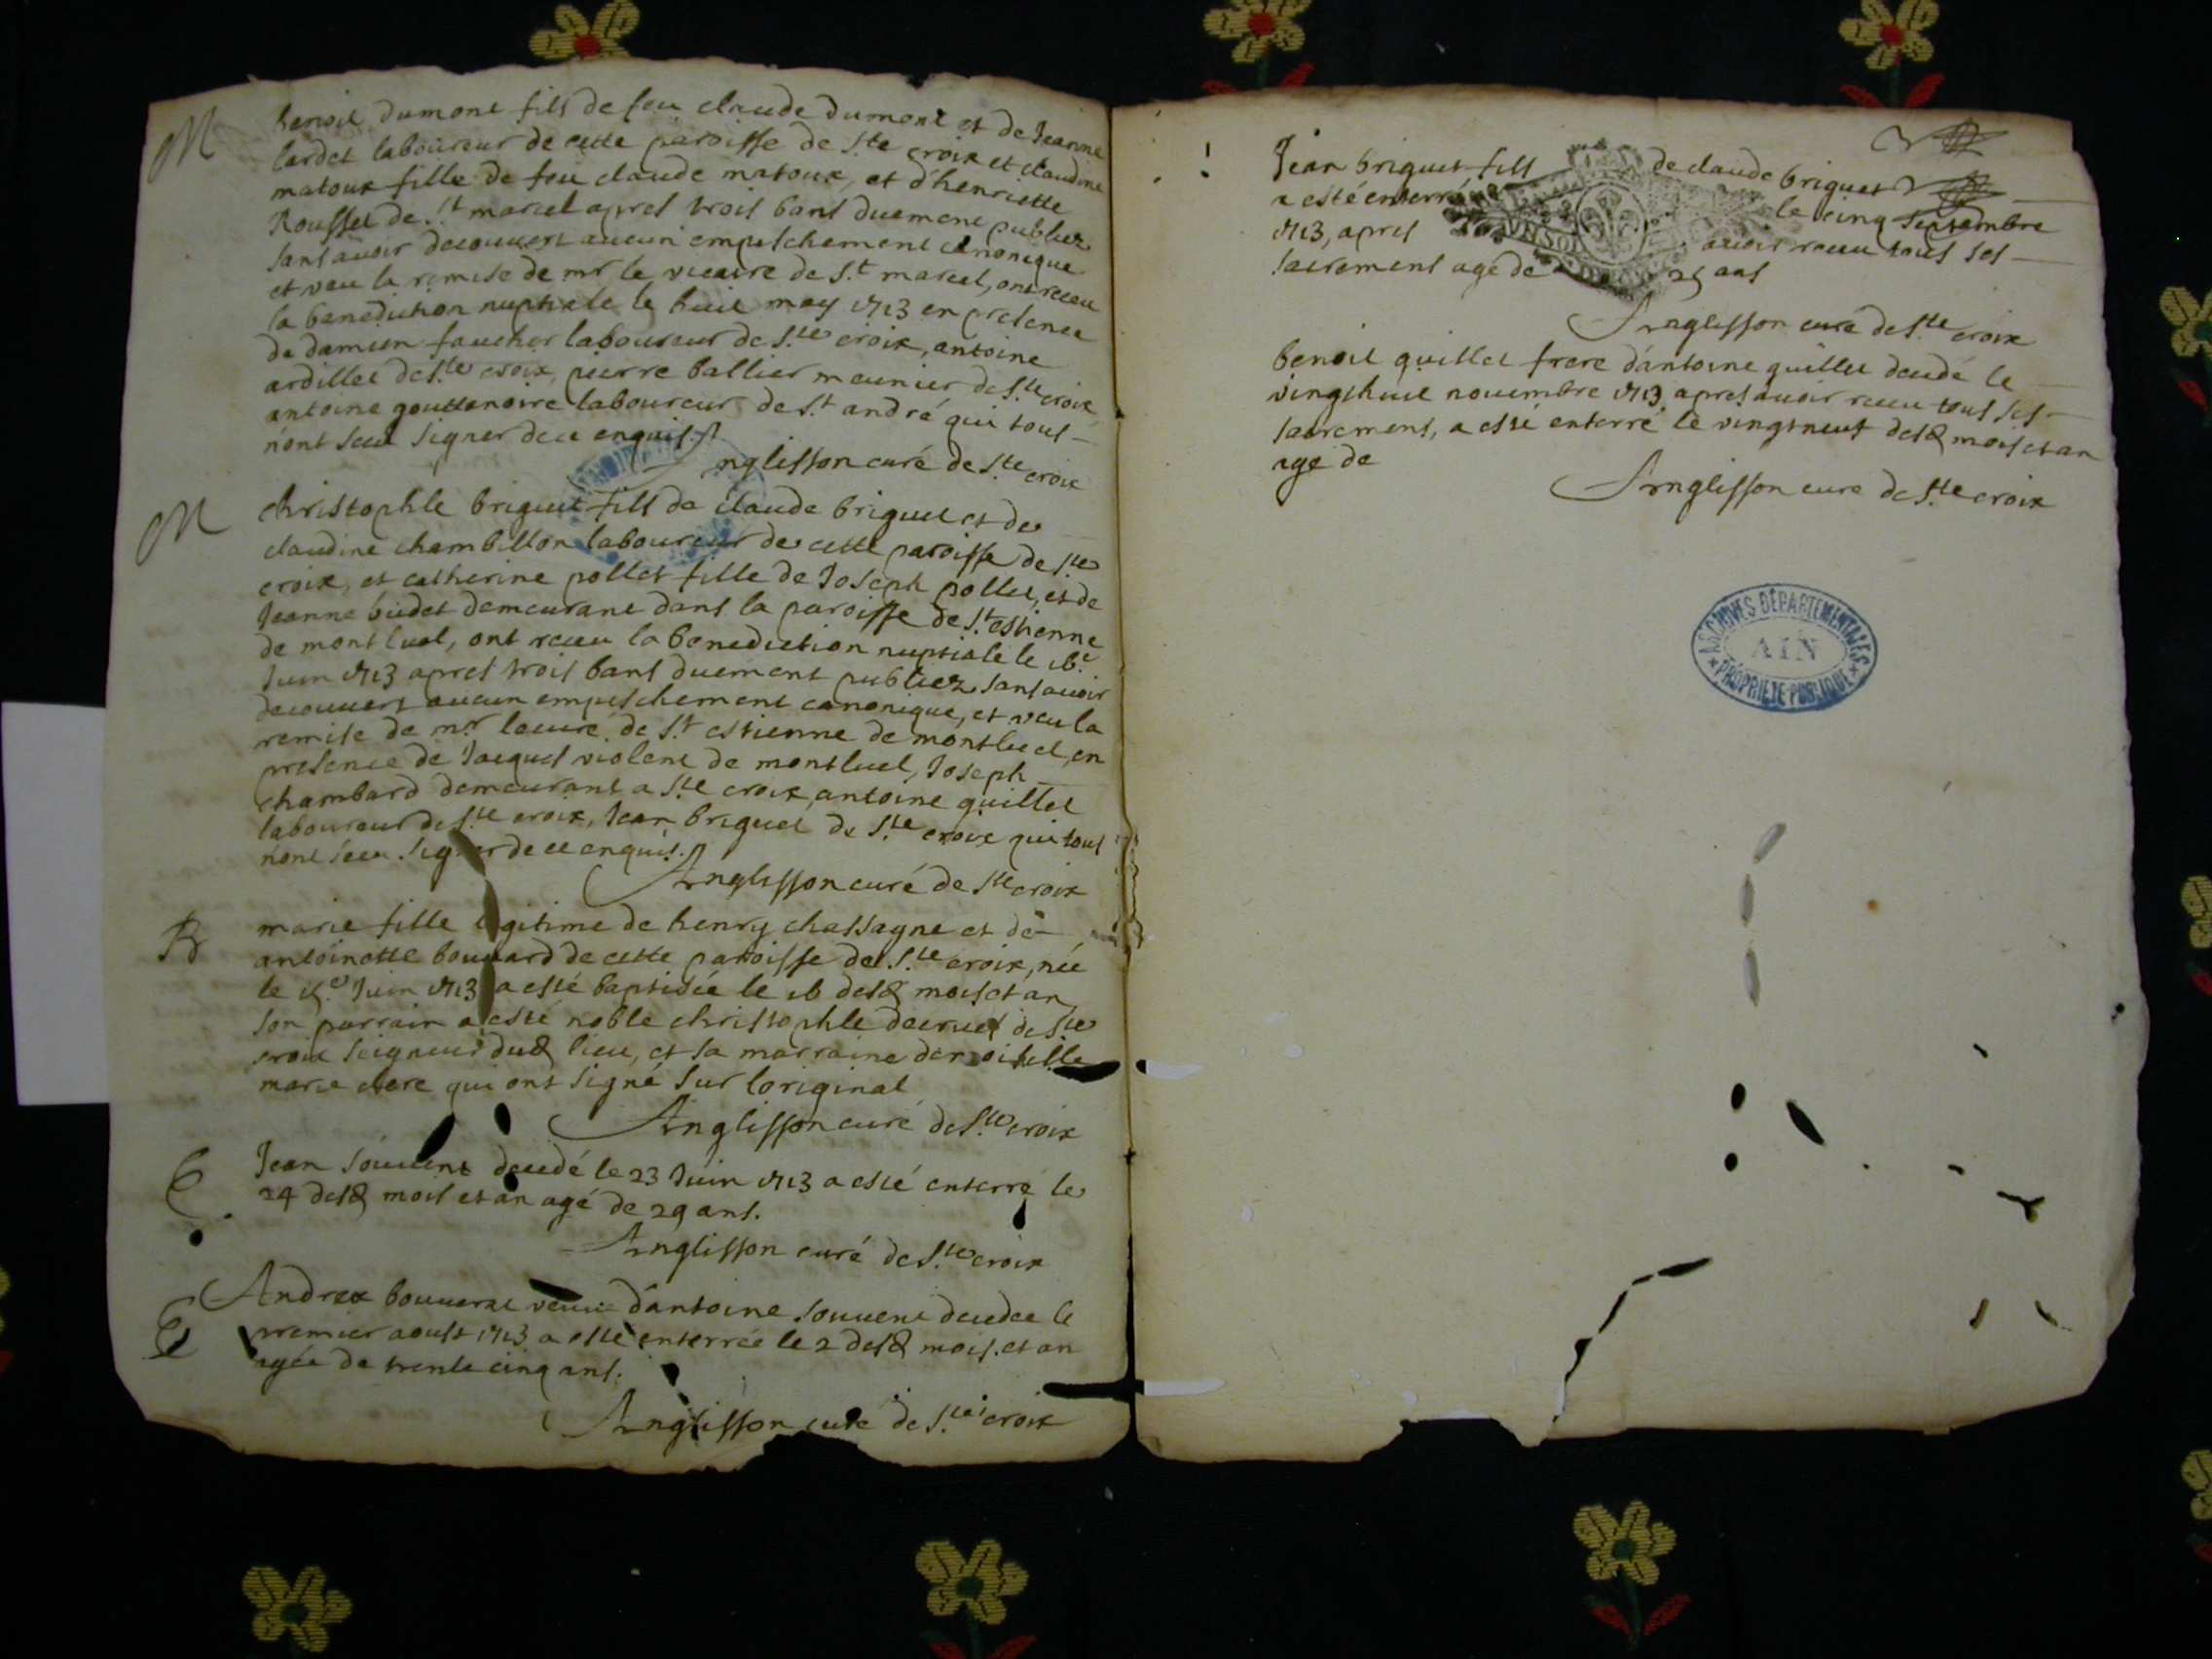 M
benoit dumont fils de feu claude dumont et de Jeanne
lardet laboureur de cette paroisse de Ste croix et claudine
matoux fille de feu claude matoux, et d'henriette
Rousset de St marcel apres trois bans duement publiez
sans avoir decouvert aucun empeschement canonique
et veu la remise de mr le vicaire de St marcel, ont receu
la benediction nuptiale le huit may 1713 en presence
de damien faucher laboureur de Ste croix, antoine
ardillet de Ste croix, pierre ballier meunier de Ste croix
antoine gouttenoire laboureur de St andré qui tous
n'ont sceu signer de ce enquis.
Anglisson curé de Ste croix
M
christophle briguet fils de claude briguet et de
claudine chambillon laboureur de cette paroisse de Ste
croix, et catherine pollet fille de Joseph pollet, et de
Jeanne budet demeurant dans la paroisse de St estienne
de montluel, ont receu la benediction nuptiale le 16e
Juin 1713 apres trois bans duement publiez sans avoir
decouvert aucun empeschement canonique, et veu la
remise de mr le curé de St estienne de montluel, en
presence de Jacques violent de montluel, Joseph
chambard demeurant a Ste croix, antoine quillet
laboureur de Ste croix, Jean briguet de Ste croix qui tous
n'ont sceu signer de ce enquis.
Anglisson curé de Ste croix
B
marie fille legitime de henry chassagne et de
antoinette bouvard de cette paroisse de Ste croix, née
le 15e Juin 1713 a esté baptisée le 16 desd mois et an
son parrain a esté noble christophle decruex de Ste
croix seigneur dud lieu, et sa marraine demoiselle
marie clere qui ont signé sur l'original
Anglisson curé de Ste croix
E
Jean souvent decedé le 23 Juin 1713 a esté enterré le
24 desd mois et an agé de 29 ans.
Anglisson curé de Ste croix
E
Andrea bouverat veuve d'antoine souvent decedee le
premier aoust 1713 a esté enterrée le 2 desd mois et an
agée de trente cinq ans.
Anglisson curé de Ste croix
Jean briguet fils de claude briguet
a esté enterré le cinq septembre
1713, apres avoir receu tous ses
sacrements agé de 25 ans
Anglisson curé de Ste croix
benoit quillet frere d'antoine quillet decedé le
vingthuit novembre 1713 apres avoir receu tous ses
sacrements, a esté enterré le vingtneuf desd mois et an
agé de
Anglisson curé de Ste croix
ARCHIVES DÉPARTEMENTALES
AIN
PROPRIÉTÉ PUBLIQUE